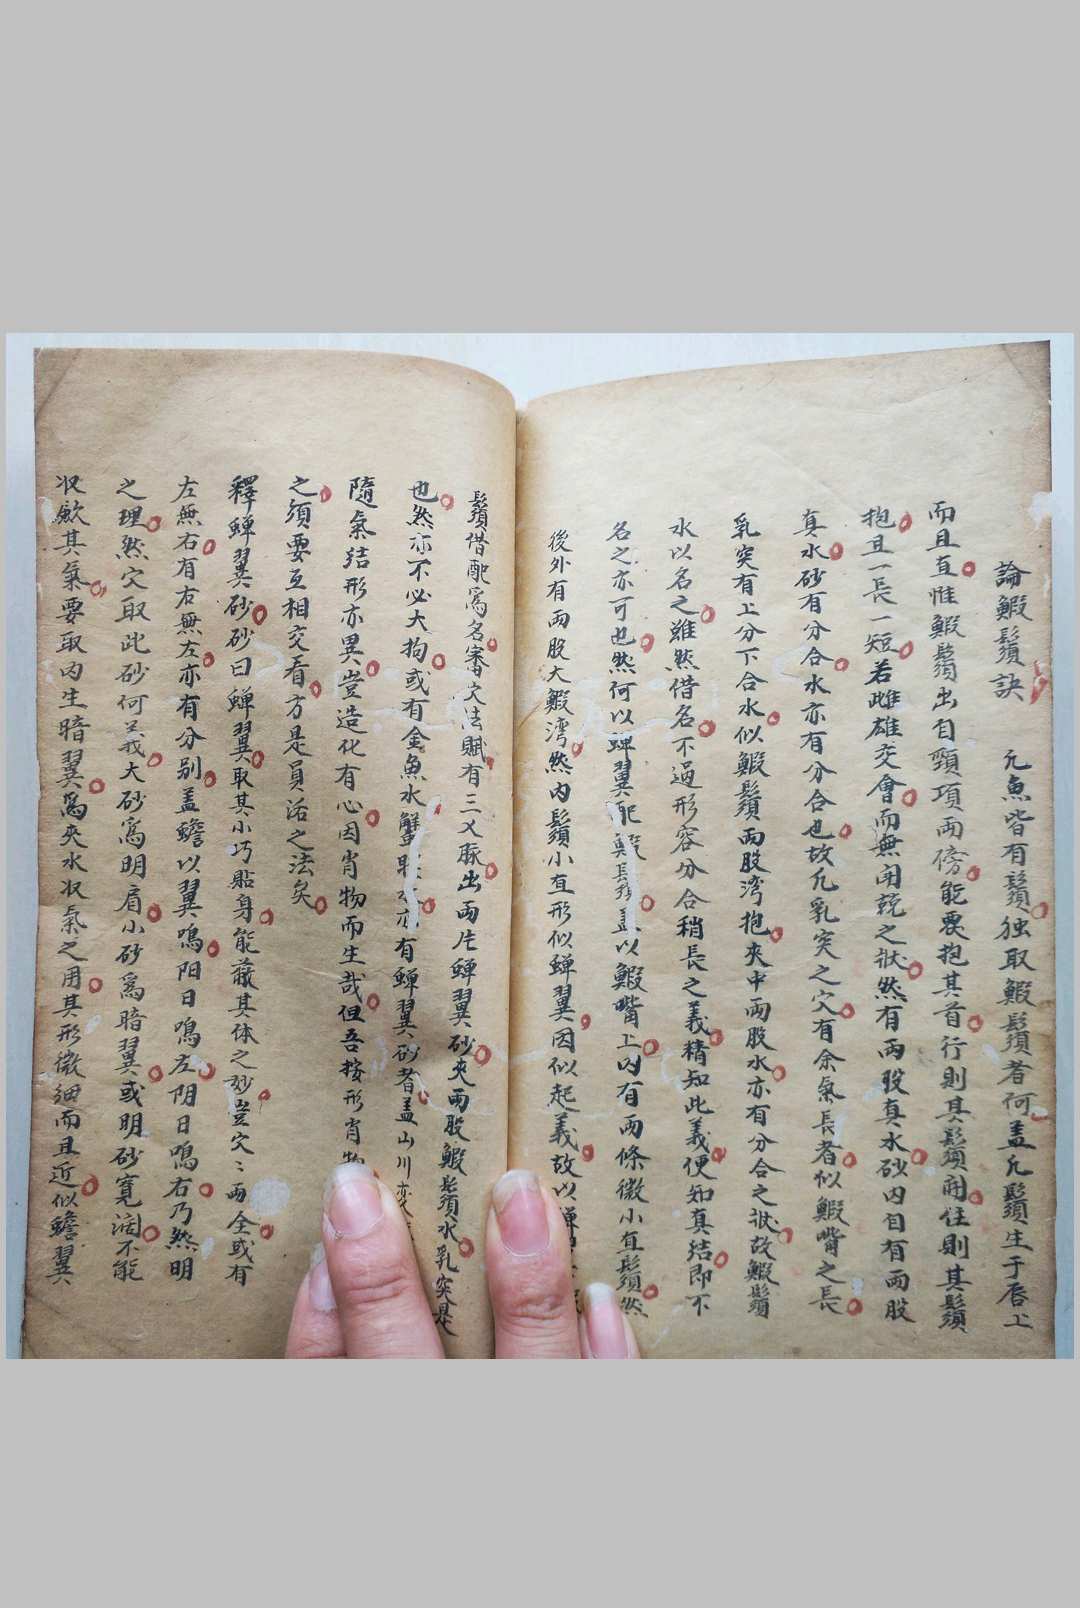 論鰕鬚訣 凢魚皆有鬚独取鰕鬚者何盖凢鬚生于唇上
而且直惟鰕鬚出自頸項両傍能裹抱其首行則其鬚開住則其鬚
抱且一長一短若雌雄交會而無開競之狀然有両股真水砂内自有両股
真水砂有分合水亦有分合也故凢乳突之穴有余氣長者似鰕嘴之長
乳突有上分下合水似鰕鬚両股湾抱夾中両股水亦有分合之狀故鰕鬚
水以名之雖然借名不過形容分合稍長之義精知此義便知真结即不
名之亦可也然何以蝉翼配鰕長鬚盖以鰕嘴上内有両條微小直鬚然
後外有両股大鰕湾然内鬚小直形似蝉翼因似起義故以蝉
鬚借配爲名審穴法賦有三乂脉出両片蝉翼砂夾両股鰕鬚水乳突是
也然亦不必大拘或有金魚水蟹眼水亦有蝉翼砂者盖山川变
隨氣结形亦異豈造化有心因肖物而生哉但吾按形肖物
之須要互相交看方是員活之法矣
釋蝉翼砂砂曰蝉翼取其小巧貼身能蔵其体之妙豈穴〻両全或有
左無右有右無左亦有分别盖蟾以翼鳴阳日鳴左阴日鳴右乃然明
之理然穴取此砂何益哉大砂爲明肩小砂爲暗翼或明砂寬濶不能
收歛其氣要取内生暗翼爲夾水收氣之用其形微细而且近似蟾翼